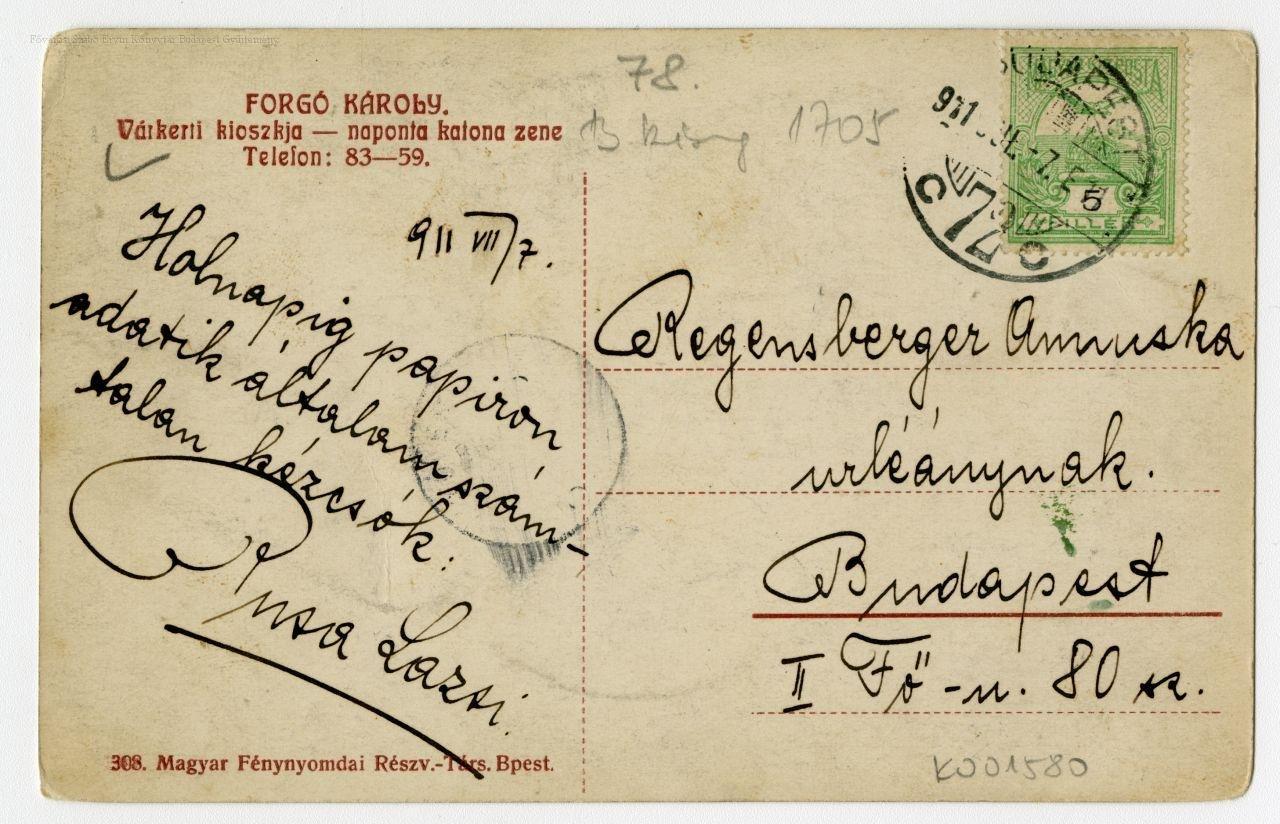 Fővárosi Szabó Ervin Könyvtár Budapest Gyűjtemény
78.
B king 1705
FORGÓ KÁROLY.
Várkerti kioszkja — naponta katona zene
Telefon: 83—59.
BUDAPEST
911 JUL.-7.
5
FILLÉR
911 VII/7.
Holnapig papiron
adatik általam szám-
talan kézcsók:
Rusa Lazsi.
Regensberger Annuska
urleánynak.
Budapest
II Fő-u. 80 sz.
308. Magyar Fénynyomdai Részv.-Társ. Bpest.
K001580